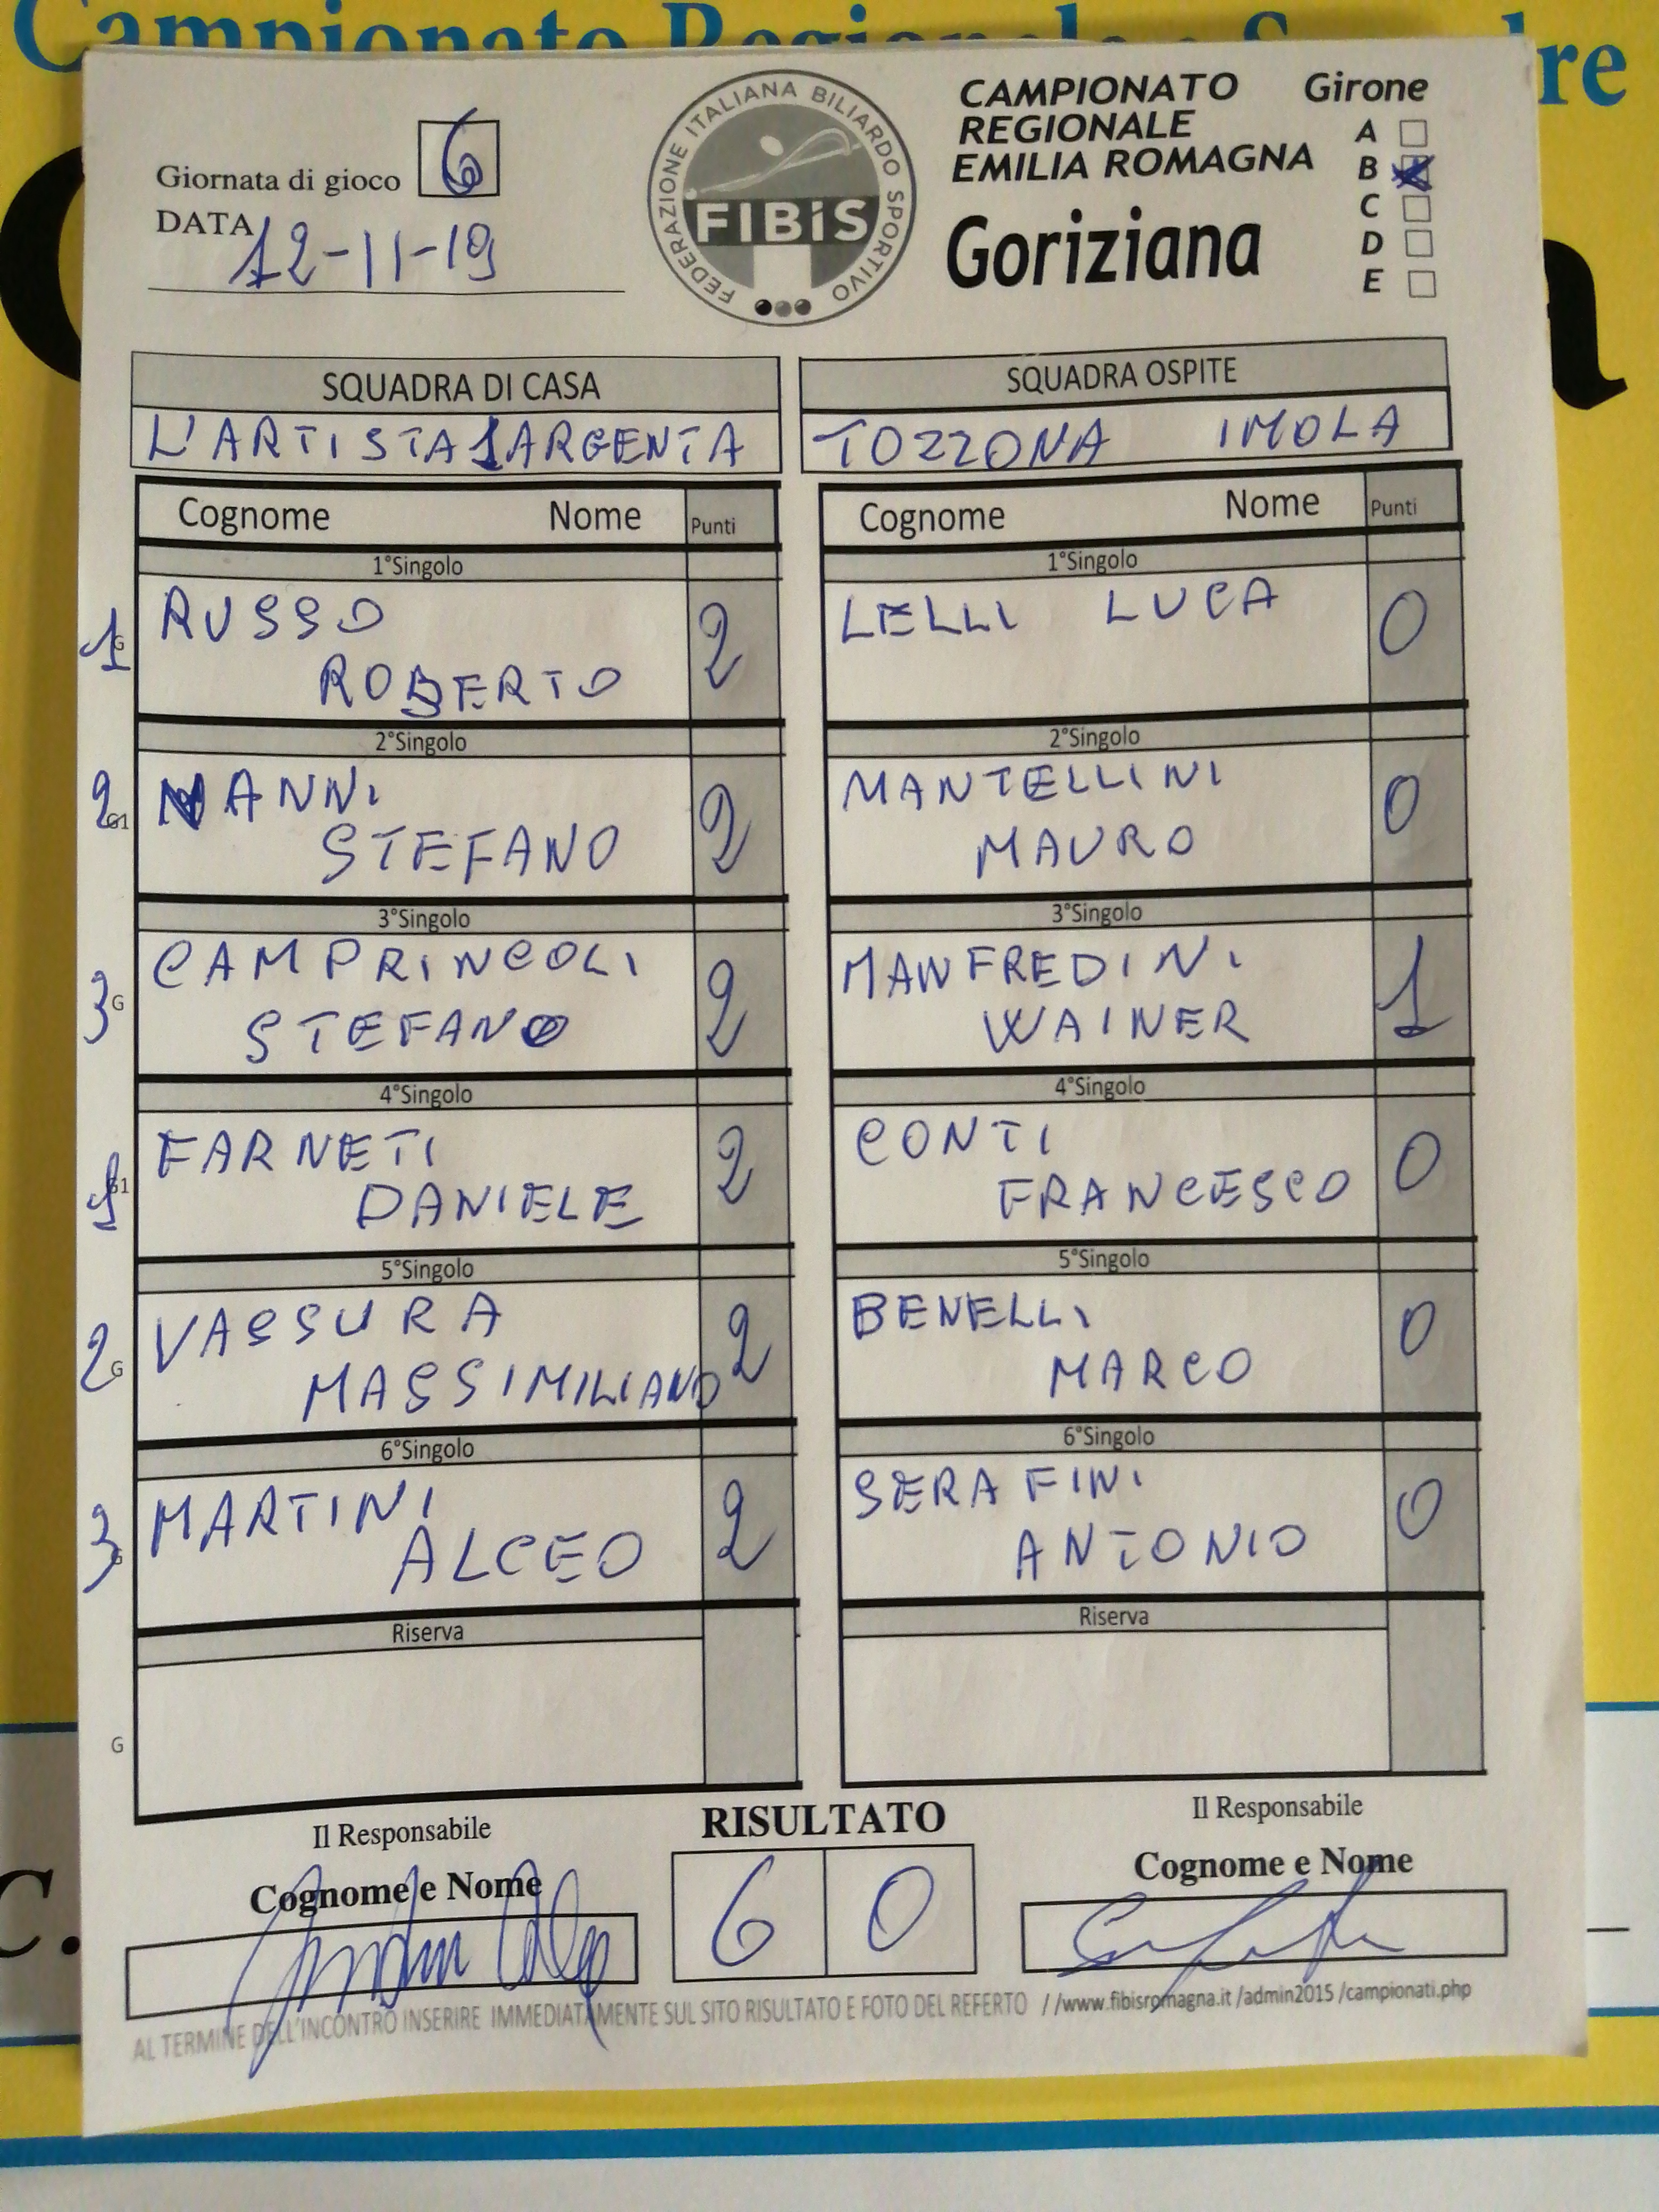 Campionato Regionale a Squadre
Giornata di gioco 6
DATA 12-11-19
FEDERAZIONE ITALIANA BILIARDO SPORTIVO
FIBiS
CAMPIONATO
REGIONALE
EMILIA ROMAGNA
Goriziana
Girone
A
B
C
D
E
SQUADRA DI CASA
L'ARTISTA 1 ARGENTA
SQUADRA OSPITE
TOZZONA IMOLA
Cognome Nome Punti
Cognome Nome Punti
1°Singolo
1°Singolo
1 G RUSSO
ROBERTO 2
LELLI LUCA 0
2°Singolo
2°Singolo
2 G1 NANNI
STEFANO 2
MANTELLINI
MAURO 0
3°Singolo
3°Singolo
3 G CAMPRINCOLI
STEFANO 2
MANFREDINI
WAINER 1
4°Singolo
4°Singolo
1 G1 FARNETI
DANIELE 2
CONTI
FRANCESCO 0
5°Singolo
5°Singolo
2 G VASSURA
MASSIMILIANO 2
BENELLI
MARCO 0
6°Singolo
6°Singolo
3 G MARTINI
ALCEO 2
SERAFINI
ANTONIO 0
Riserva
Riserva
G
Il Responsabile
Cognome e Nome
RISULTATO
6 0
Il Responsabile
Cognome e Nome
AL TERMINE DELL'INCONTRO INSERIRE IMMEDIATAMENTE SUL SITO RISULTATO E FOTO DEL REFERTO //www.fibisromagna.it /admin2015 /campionati.php
C.